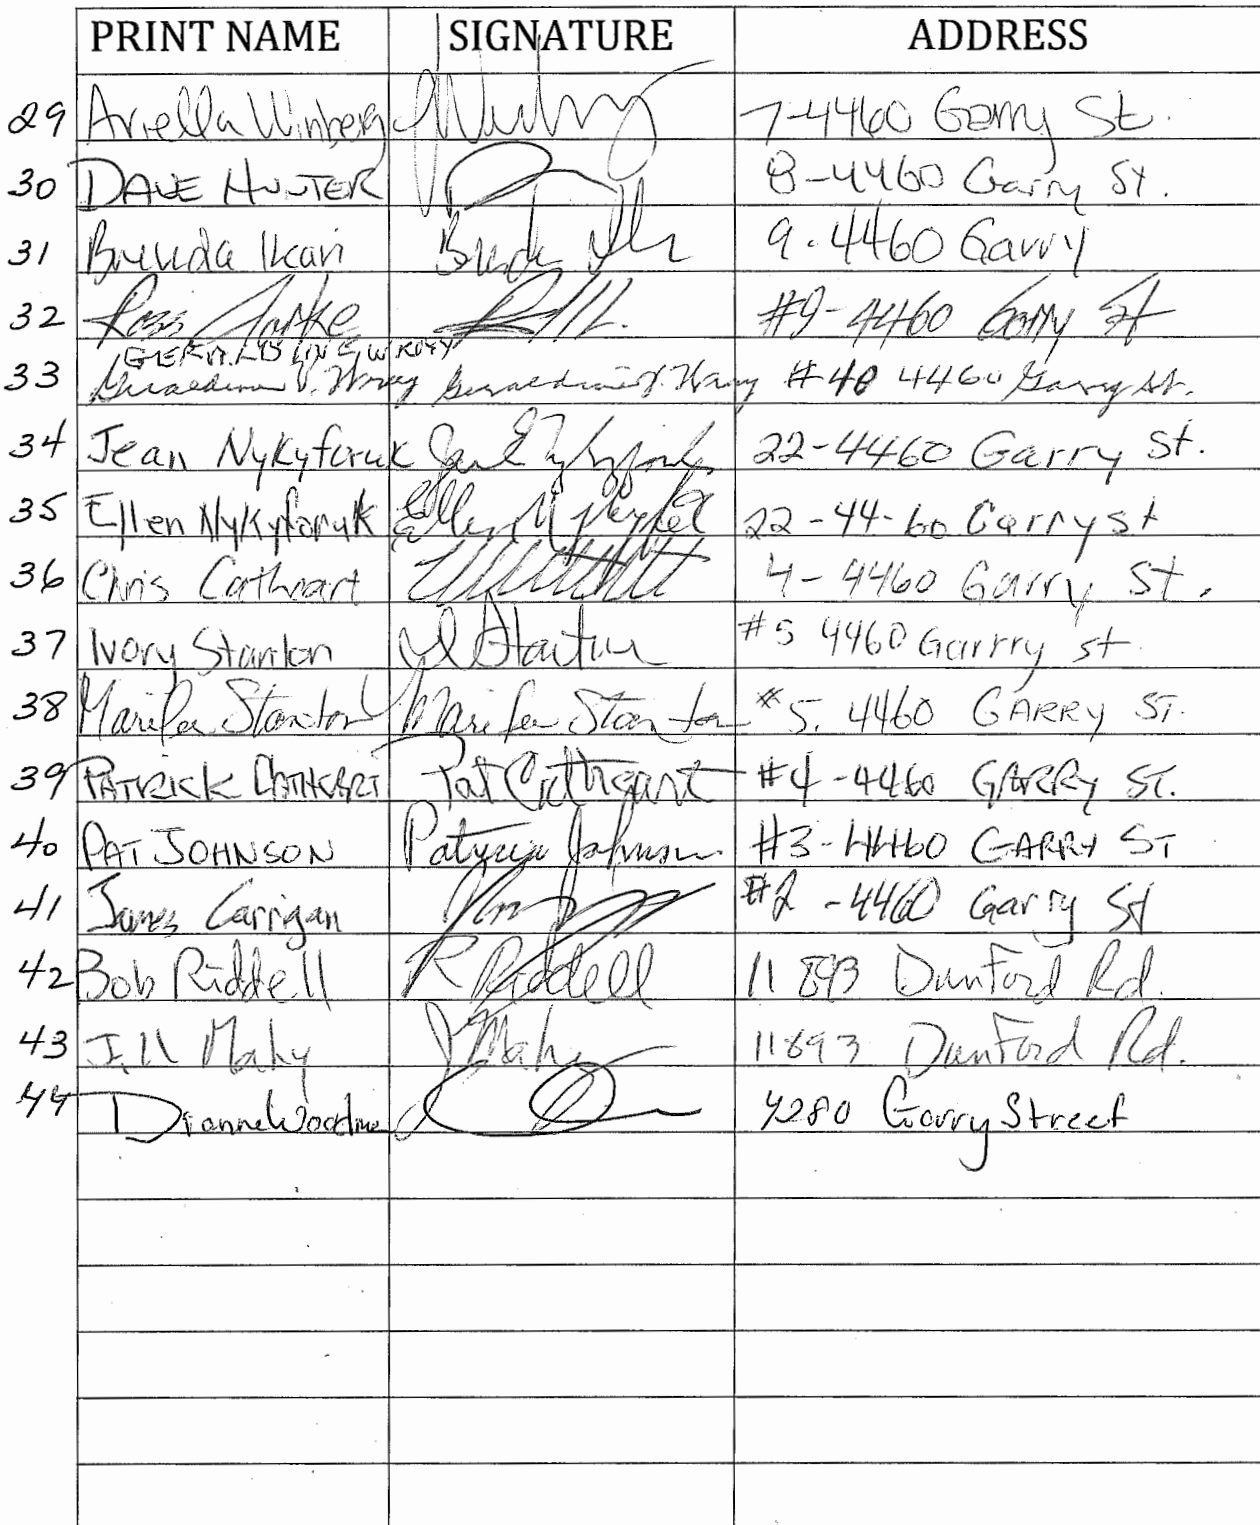 PRINT NAME SIGNATURE ADDRESS
29 Ariella Winberg 7-4460 Garry St.
30 DAVE HUNTER 8-4460 Garry St.
31 Brenda Ikari 9-4460 Garry
32 Ross #9-4460 Garry St
GERALDINE WRAY
33 Geraldine V. Wray Geraldine V. Wray #40 4460 Garry St.
34 Jean Nykyforuk 22-4460 Garry St.
35 Ellen Nykyforuk 22-44-60 Garry st
36 Chris Cathcart 4-4460 Garry St.
37 Ivory Stanton #5 4460 Garrry st
38 Marifer Stanton Marifer Stanton #5, 4460 GARRY ST.
39 PATRICK CATHCART Pat Cathcart #4-4460 GARRY ST.
40 PAT JOHNSON Patricia Johnson #3-4460 GARRY ST
41 James Carrigan #2-4460 Garry St
42 Bob Riddell R Riddell 11893 Dunford Rd.
43 Jill Mahy J Mahy 11893 Dunford Rd.
44 Dianne 4280 Garry Street